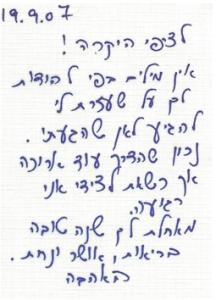 19.9.07
לציפי היקרה!
אין מילים בפי להודות
לך על שעזרת לי
להגיע לאן שהגעתי.
נכון שהדרך עוד ארוכה
אך כשאת לצידי אני
רגועה.
מאחלת לך שנה טובה
בריאות, אושר ונחת.
באהבה